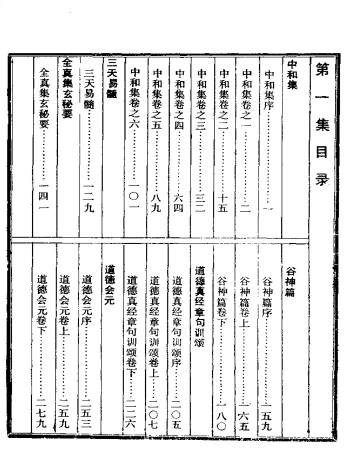 第一集目录
中和集
中和集序……一
中和集卷之一……二
中和集卷之二……十五
中和集卷之三……三二
中和集卷之四……六四
中和集卷之五……八九
中和集卷之六……一〇一
三天易髓
三天易髓……一二九
全真集玄秘要
全真集玄秘要……一四一
谷神篇
谷神篇序……一五九
谷神篇卷上……一六五
谷神篇卷下……一八〇
道德真经章句训颂
道德真经章句训颂序……二〇五
道德真经章句训颂卷上……二〇七
道德真经章句训颂卷下……二二六
道德会元
道德会元序……二五三
道德会元卷上……二五九
道德会元卷下……二七九